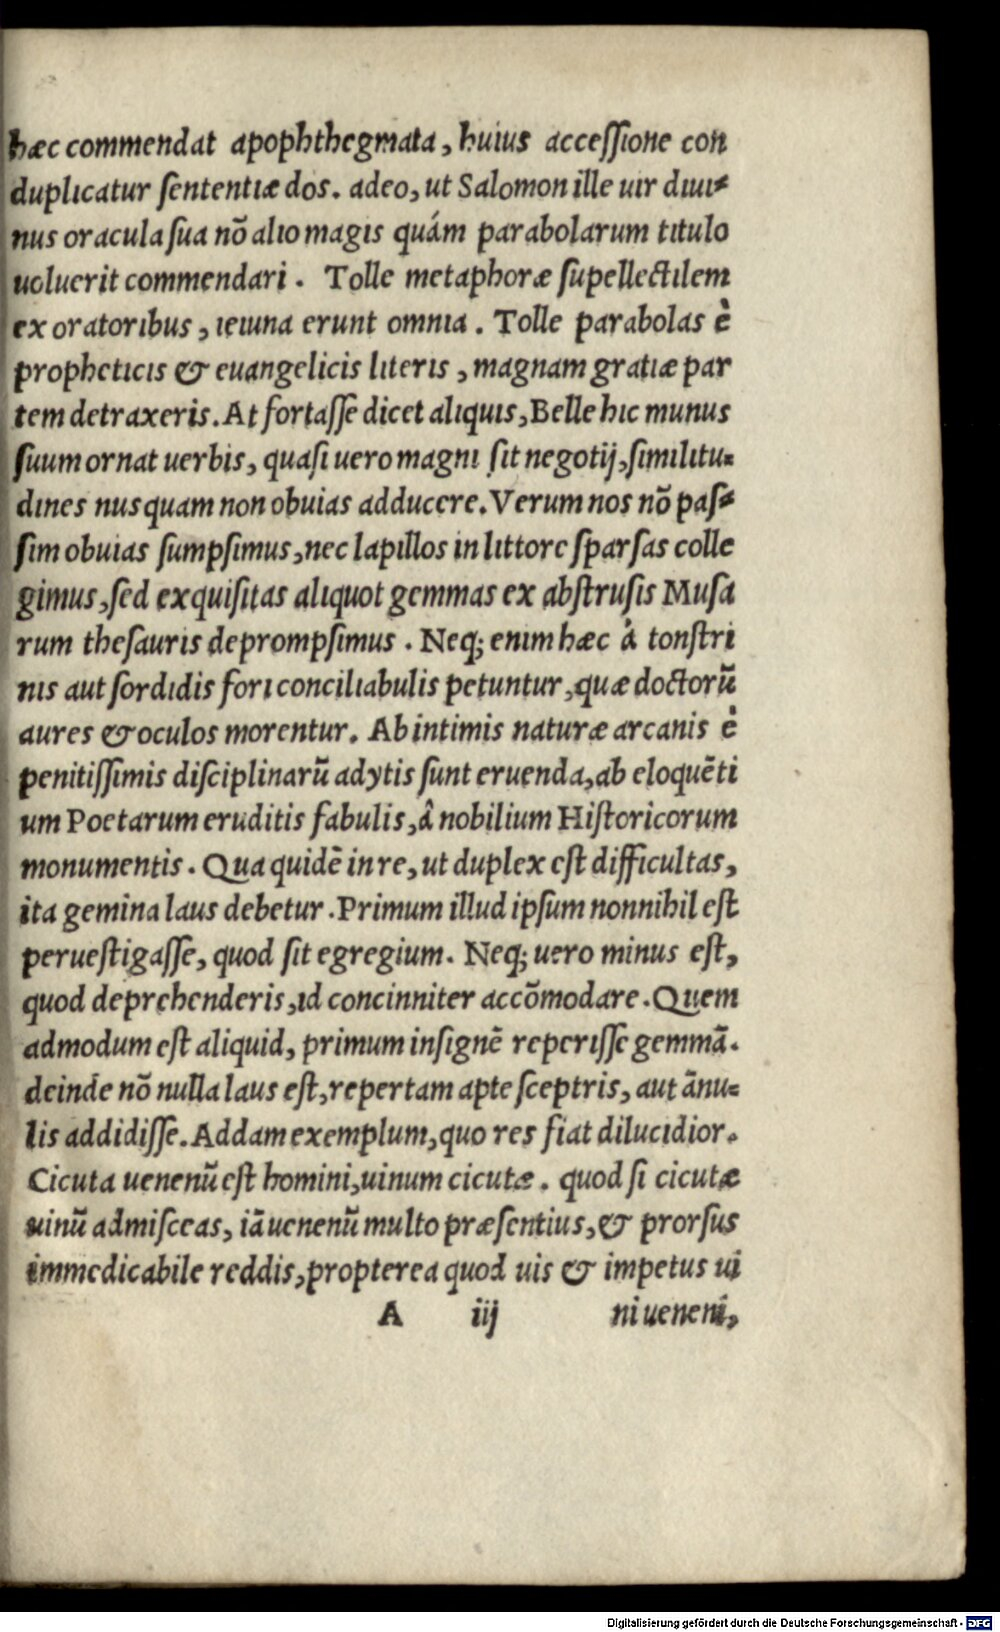 hæc commendat apophthegmata, huius accessione con
duplicatur sententiæ dos. adeo, ut Salomon ille uir diui-
nus oracula sua nõ alio magis quám parabolarum titulo
uoluerit commendari. Tolle metaphoræ supellectilem
ex oratoribus, ieiuna erunt omnia. Tolle parabolas è
propheticis & euangelicis literis, magnam gratiæ par
tem detraxeris. At fortasse dicet aliquis, Belle hic munus
suum ornat uerbis, quasi uero magni sit negotij, similitu-
dines nusquam non obuias adducere. Verum nos nõ pas-
sim obuias sumpsimus, nec lapillos in littore sparsas colle
gimus, sed exquisitas aliquot gemmas ex abstrusis Musa
rum thesauris deprompsimus. Neq; enim hæc à tonstri
nis aut sordidis fori conciliabulis petuntur, quæ doctorũ
aures & oculos morentur. Ab intimis naturæ arcanis è
penitissimis disciplinarũ adytis sunt eruenda, ab eloquẽti
um Poetarum eruditis fabulis, â nobilium Historicorum
monumentis. Qua quidẽ in re, ut duplex est difficultas,
ita gemina laus debetur. Primum illud ipsum nonnihil est
peruestigasse, quod sit egregium. Neq; uero minus est,
quod deprehenderis, id concinniter accõmodare. Quem
admodum est aliquid, primum insignẽ reperisse gemmã.
deinde nõ nulla laus est, repertam apte sceptris, aut ãnu-
lis addidisse. Addam exemplum, quo res fiat dilucidior.
Cicuta uenenũ est homini, uinum cicutæ. quod si cicutæ
uinũ admisceas, iã uenenũ multo præsentius, & prorsus
immedicabile reddis, propterea quod uis & impetus ui
A iij ni ueneni,
Digitalisierung gefördert durch die Deutsche Forschungsgemeinschaft - DFG